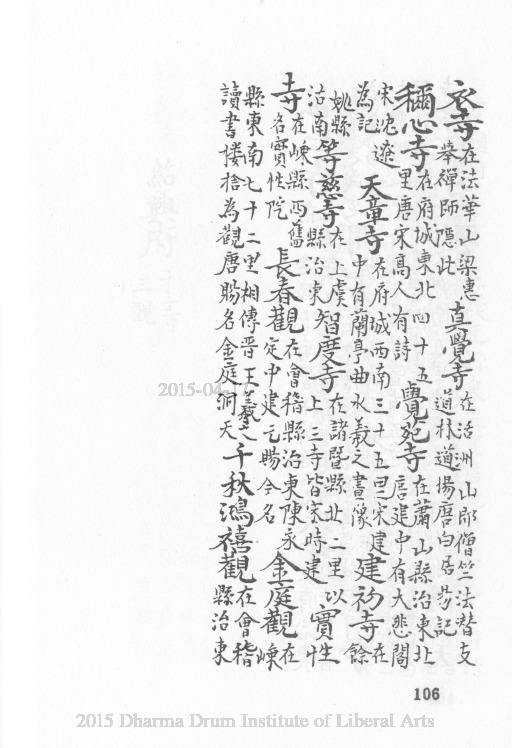 衣寺在法華山梁惠舉禪師隱此真覺寺在沃洲山郎僧竺法潛支道林道場唐白居易記
稱心寺在府城東北四十五里唐宋高人有詩覺苑寺在蕭山縣治東北唐建中有大悲閣
宋沈遼為記天章寺在府城西南三十五里宋建中有蘭亭曲水羲之畫像建初寺在餘
姚縣治南等慈寺在上虞縣治東智度寺在諸暨縣北二里以上三寺皆宋時建實性
寺在嵊縣西舊名實性院長春觀在會稽縣治東陳永定中建元賜今名金庭觀在嵊
縣東南七十二里相傳晉王羲之讀書樓捨為觀唐賜名金庭洞天千秋鴻禧觀在會稽縣治東
106
2015 Dharma Drum Institute of Liberal Arts